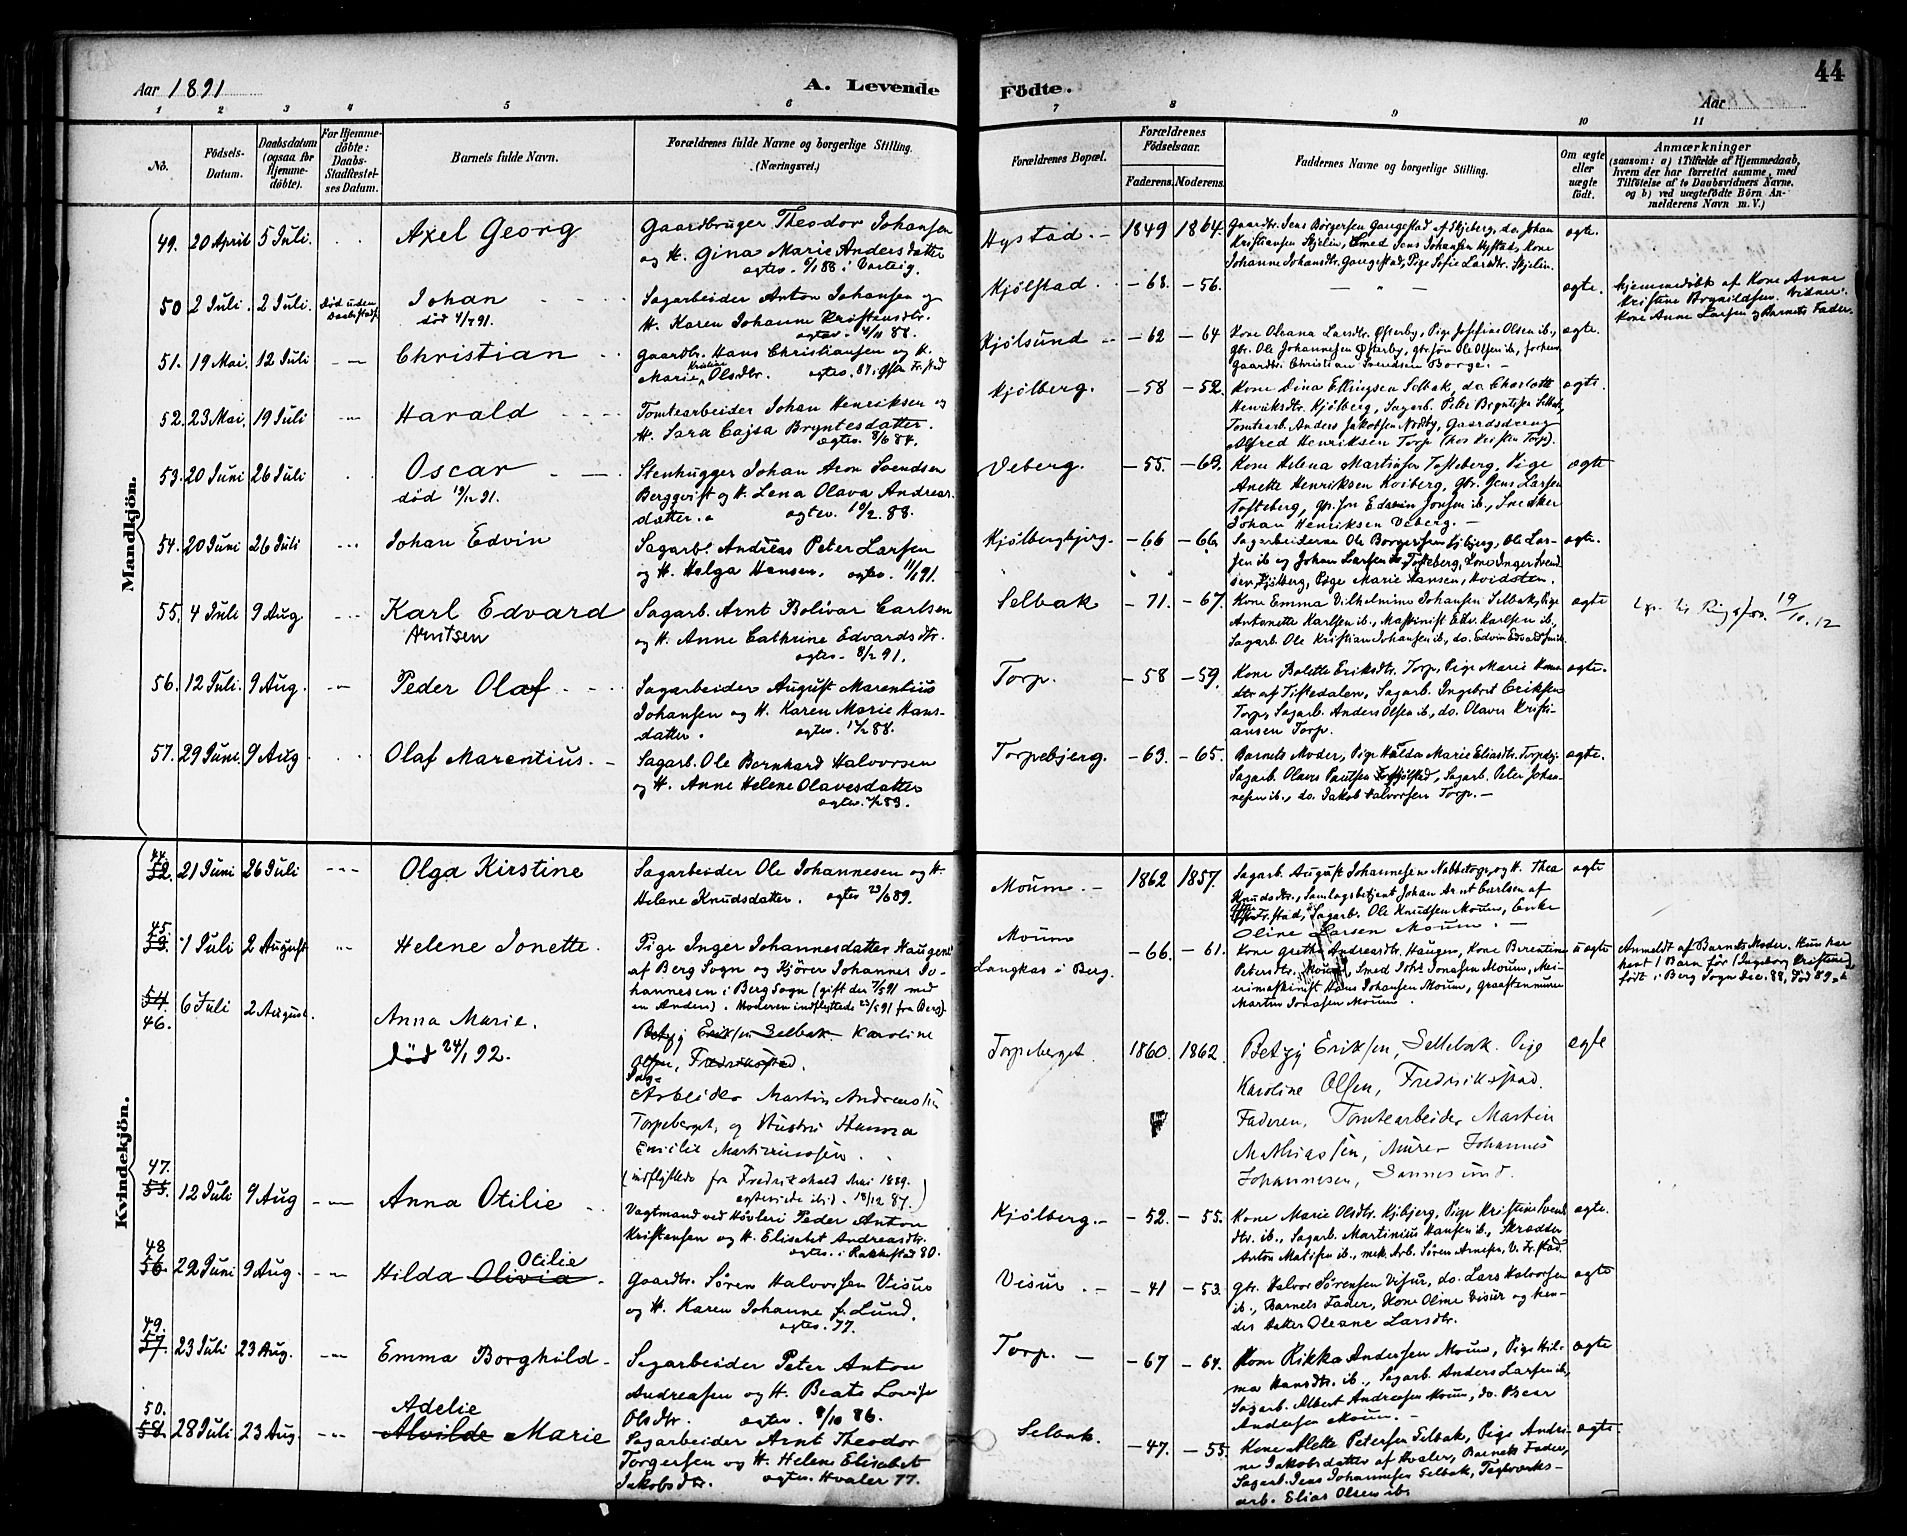 Aar 1891
A. Levende
Fødte.
44
Aar
1 2 3 4 5 6 7 8 9 10 11
No.
Fødsels-Datum.
Daabsdatum (ogsaa for Hjemme-døbte).
For Hjemme-døbte: Daabs-Stadfæstel-ses Datum.
Barnets fulde Navn.
Forældrenes fulde Navne og borgerlige Stilling.
(Næringsvei.)
Forældrenes Bopæl.
Forældrenes Fødselsaar.
Faderens. Moderens.
Faddernes Navne og borgerlige Stilling.
Om ægte eller uægte født.
Anmærkninger
(saasom: a) i Tilfælde af Hjemmedaab, hvem der har forrettet samme, med Tilføielse af to Daabsvidners Navne, og b) ved uægtefødte Børn An-melderens Navn m. V.)
Mandkjøn.
49. 20 April 5 Juli. Axel Georg
Gaardbruger Theodor Johansen
og H. Gina Marie Andersdatter
agtev. 88 i Varteig.
Hystad. 1849 1864.
Gaardbr. Jens Børgersen Gangestad af Skjeberg, do. Johan
Kristiansen Skjelin, Smed Jens Johansen Hystad, Kone
Johanne Johansdtr. Gangestad, Pige Sofie Larsdtr. Skjelin.
ægte.
50 2 Juli. 2 Juli. død uden Daabsstadf.
Johan
død 4/7 91.
Sagarbeider Anton Johansen og
H. Karen Johanne Kristensdtr.
agtev. 4/11 88.
Kjølstad. - 68. - 56.
- " -
ægte.
hjemmedøbt af Kone Anne
Kristine Brynildsen. Vidner:
Kone Anne Larsen og Barnets Fader.
51. 19 Mai. 12 Juli Christian
Gaardbr. Hans Christiansen og H.
Marie Kristine Olsdtr. agtev. 87 i Fr.stad
Kjølsund - 62 - 64
Kone Oleana Larsdtr. Østerby, Pige Josefine Olsen ib.,
gbr. Ole Johannesen Østerby, gbr. søn Ole Olsen ib., forhen
Gaardbr. Christian Svendsen Borge. -
ægte.
52. 23 Mai. 19 Juli Harald
Tomtearbeider Johan Henriksen og
H. Sara Cajsa Bryntesdatter.
agtev. 8/6 84.
Kjølberg. - 58 - 52.
Kone Dina Ellingsen Selbak, do. Charlotte
Henriksdtr. Kjølberg, Sagarb. Peter Selbak,
Tomtearb. Anders Jakobsen Nordby, Gaardsdreng
Alfred Henriksen Torp (hos Kristen Torp).
ægte.
53. 20 Juni 26 Juli Oscar
død 19/12 91.
Stenhugger Johan Aron Svendsen
Bergqvist og H. Lena Olava Andreas-
datter. agtev. 19/2 88.
Veberg. - 55. - 69.
Kone Helena Martinsen Tofteberg, Pige
Anette Henriksen Kviberg, gbr. Jens Larsen
Tofteberg, gbr. søn Edevin Jensen ib., Snedker
Johan Henriksen Veberg. -
ægte
54. 20 Juni 26 Juli Johan Edvin
Sagarb. Andreas Peter Larsen
og H. Helga Hansen. agtev. 11/1 91.
Kjølbergbjerg. - 66 - 66.
Sagarbeiderne Ole Borgersen Kjbjerg, Ole Lar-
sen ib. og Johan Larsen Tofteberg, Kone Inger Svend-
sen Kjølberg, Pige Marie Hansen, Hvidsten.
ægte.
55. 4 Juli 9 Aug. Karl Edvard
Arntsen
Sagarb. Arnt Bolivar Carlsen
og H. Anne Cathrine Edvardsdtr.
agtev. 8/2 91.
Selbak - 71. - 67.
Kone Emma Vilhelmine Johansen Selbak, Pige
Antonette Karlsen ib., Maskinist Edv. Karlsen ib.,
Sagarb. Ole Kristian Johansen ib., do. Edvin Edvardsen ib.
ægte
19/10. 12
56. 12 Juli. 9 Aug. Peder Olaf
Sagarbeider August Marentius
Johansen og H. Karen Marie Hans-
datter. agtev. 88.
Torp. - 58 - 59.
Kone Bolette Eriksdtr. Torp, Pige Marie
dtr. af Tistedalen, Sagarb. Ingebret Eriksen
Torp, Sagarb. Anders Olsen ib., do. Olaves Kristi-
ansen Torp.
ægte.
57. 29 Juni. 9 Aug. Olaf Marentius.
Sagarb. Ole Bernhard Halvorsen
og H. Anne Helene Olavesdatter
agtev. 89.
Torpebjerg. - 63. - 65.
Barnets Moder, Pige Hulda Marie Eliasdtr. Torpebj.
Sagarb. Olaves Paulsen Kjølstad, Sagarb. Peter Johan-
nesen ib., do. Jakob Halvorsen Torp. -
ægte.
Kvindekjøn.
44. 52. 21 Juni 26 Juli Olga Kirstine
Sagarbeider Ole Johannesen og H.
Helene Knudsdatter. agtev 23/6 89.
Moum. - 1862 1857.
Sagarb. August Johannesen Nabbetorp og H. Thea
Knudsdtr., Samlagsbetjent Johan Arnt Carlsen af
Fr.stad, Sagarb. Ole Knudsen Moum, Enke
Oline Larsen Moum. -
ægte
45. 53. 1 Juli 2 August Helene Jonette.
Pige Inger Johannesdatter Haugen
af Berg Sogn og Kjører Johannes Jo-
hannesen i Berg Sogn (gift den 7/5 91 med
en Anden). Moderen indflyttede 23/5 91 fra Berg).
Moum
Langkas i Berg. - 66. - 61.
Kone Grethe Andreasdtr. Haugen, Kone Berentine
Petersdtr. Moum, Smed Johs. Jonasen Moum, Mei-
erimaskinist Hans Johansen Moum, Graastenmurer
Martin Jonasen Moum.
uægte
Anmeldt af Barnets Moder. Hun har
havt 1 Barn før (Ingeborg Kristine)
født i Berg Sogn Dec. 88, død 89.
54. 46. 6 Juli 2 August. Anna Marie.
død 24/1 92.
Betzy Eriksen Selbak Karoline
Olsen, Fredriksstad.
Sag-
Arbeider Martin Andreassen
Torpeberget, og Hustru Hanna
Emilie Martinussen.
(indflyttede fra Fredrikshald Mai 1889.
agteviede ibid. 18/12 87.)
Torpeberget. 1860. 1862.
Betzy Eriksen, Sellebak. Pige
Karoline Olsen, Fredriksstad.
Faderen, Tomtearbeider Martin
Mathiassen, Murer Johannes
Johannesen, Sannesund.
ægte
47. 55. 12 Juli 9 Aug Anna Otilie
Vagtmand ved Høvleri Peder Anton
Kristensen og H. Elisabet Andreasdtr.
agtev. i Rakkestad 80.
Kjølberg. - 52. - 55.
Kone Marie Olsdtr. Kjbjerg, Pige Kristine Svends-
dtr. ib., Sagarb. Martinius Hansen ib., Skrædder
Anton Matisen ib., mek. Arb. Søren Arnesen, V. Fr.stad.
ægte.
48 56. 22 Juni 9 Aug. Hilda Olivia Otilie
Gaardbr. Søren Halvorsen Visur
og H. Karen Johanne f. Lund.
agtev. 77.
Visur. - 41 - 53.
gbr. Halvor Sørensen Visur, do. Lars Halvorsen
ib., Barnets Fader, Kone Oline Visur og hen-
des Datter Oleane Larsdtr.
ægte
49. 57. 23 Juli 23 Aug. Emma Borghild
Sagarbeider Peter Anton
Andreasen og H. Beate Lovise
Olsdtr. agtev. 8/10 86.
Torp. - - 67 - 64.
Kone Rikka Andersen Moum, Pige Hil-
ma Hansdtr. ib., Sagarb. Anders Larsen ib.,
Sagarb. Albert Andreasen Moum, do.
Andersen Moum. -
ægte
50. 58. 28 Juli 23 Aug. Adelie
Alvilde Marie
Sagarbeider Arnt Theodor
Torgersen og H. Helene Elisabet
Jakobsdtr. agtev. Hvaler 77.
Selbak. - 47. - 55.
Kone Alette Petersen Selbak, Pige Andri-
ne Jakobsdatter af Hvaler, Barnets Fader,
Sagarb. Jens Johannesen Selbak, Teglværks-
arb. Elias Olsen ib.
ægte.